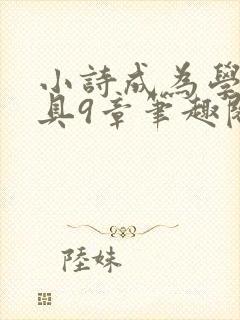 小詩成為學
具9章筆趣閣
陸妹